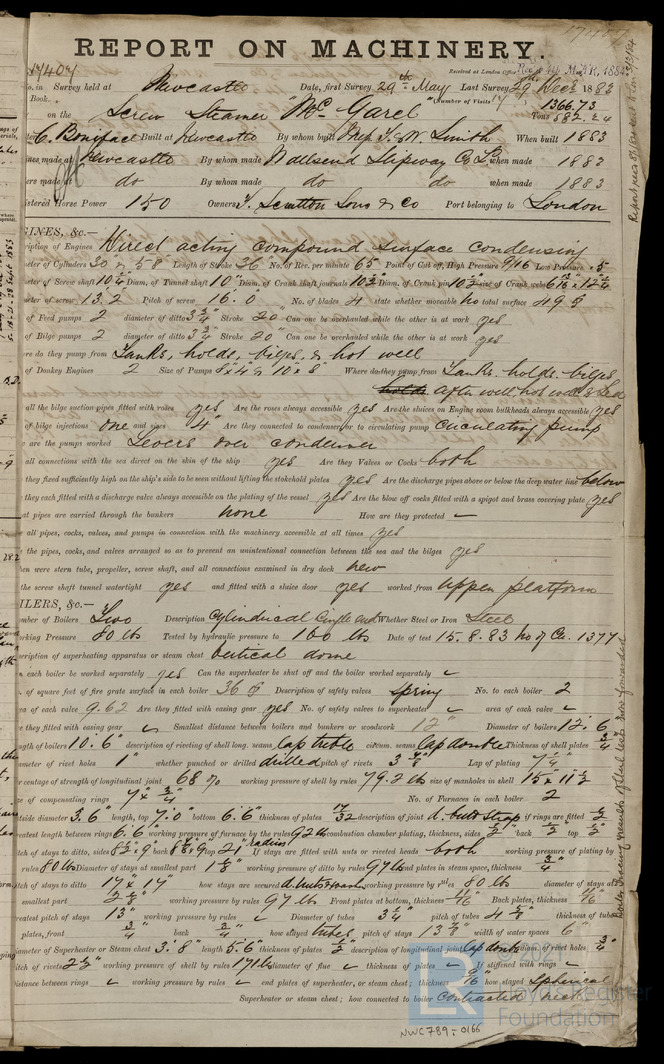 REPORT ON MACHINERY.
17407
Received at London Office
No. in Survey held at Newcastle Date, first Survey 29th May Last Survey 29 Decr 1883
Book. (Number of Visits
on the Screw Steamer "Mc Garel" Tons 1366.73 882.24
Built at Newcastle By whom built T. & W. Smith When built 1883
made at Newcastle By whom made Wallsend Slipway Co Ld when made 1883
made at do By whom made do do when made 1883
Horse Power 150 Owners T. Scrutton Sons & Co Port belonging to London
ENGINES, &c.—
Description of Engines Direct acting compound surface condensing
of Cylinders 30" & 58" Length of Stroke 36" No. of Rev. per minute 65 Point of Cut off, High Pressure 9/16 Low Pressure .5
of Screw shaft 10 3/4" Diam. of Tunnel shaft 10" Diam. of Crank shaft journals 10 1/2" Diam. of Crank pin 10 1/2" size of Crank webs
of screw 13.2 Pitch of screw 16.0 No. of blades 4 state whether moveable no total surface 49.5
of Feed pumps 2 diameter of ditto 3 3/4" Stroke 20" Can one be overhauled while the other is at work yes
of Bilge pumps 2 diameter of ditto 3 3/4" Stroke 20" Can one be overhauled while the other is at work yes
do they pump from Tanks, holds, bilges, & hot well
of Donkey Engines 2 Size of Pumps 8 x 4 & 10 x 8" Where do they pump from Tanks. holds. bilges
holds after well, hot well & Sea
all the bilge suction pipes fitted with roses yes Are the roses always accessible yes Are the sluices on Engine room bulkheads always accessible yes
of bilge injections one and sizes 4" Are they connected to condenser, or to circulating pump circulating pump
are the pumps worked Levers over condenser
all connections with the sea direct on the skin of the ship yes Are they Valves or Cocks both
they fixed sufficiently high on the ship's side to be seen without lifting the stokehold plates yes Are the discharge pipes above or below the deep water line below
they each fitted with a discharge valve always accessible on the plating of the vessel yes Are the blow off cocks fitted with a spigot and brass covering plate yes
pipes are carried through the bunkers none How are they protected ✓
all pipes, cocks, valves, and pumps in connection with the machinery accessible at all times yes
the pipes, cocks, and valves arranged so as to prevent an unintentional connection between the sea and the bilges yes
were stern tube, propeller, screw shaft, and all connections examined in dry dock new
the screw shaft tunnel watertight yes and fitted with a sluice door yes worked from upper platform
BOILERS, &c.—
Number of Boilers Two Description Cylindrical Single ended Whether Steel or Iron Steel
Working Pressure 80 lbs Tested by hydraulic pressure to 160 lbs Date of test 15.8.83 No of Ce. 1377
Description of superheating apparatus or steam chest vertical dome
each boiler be worked separately yes Can the superheater be shut off and the boiler worked separately ✓
of square feet of fire grate surface in each boiler 36 Description of safety valves Spring No. to each boiler 2
of each valve 9.62 Are they fitted with easing gear yes No. of safety valves to superheater ✓ area of each valve ✓
they fitted with easing gear ✓ Smallest distance between boilers and bunkers or woodwork 12" Diameter of boilers 12.6"
Length of boilers 10.6" description of riveting of shell long. seams lap treble circum. seams lap double Thickness of shell plates 3/4"
of rivet holes 1" whether punched or drilled drilled pitch of rivets Lap of plating 7 1/4"
percentage of strength of longitudinal joint 68 % working pressure of shell by rules 79.2 lb size of manholes in shell 15 x 11 1/2
of compensating rings 7" x 3/4" No. of Furnaces in each boiler 2
diameter 3.6" length, top 7.0" bottom 6.6" thickness of plates 17/32 description of joint d. butt strap if rings are fitted
greatest length between rings 6.6 working pressure of furnace by the rules 92 lb combustion chamber plating, thickness, sides 1/2" back 1/2" top 1/2"
pitch of stays to ditto, sides back top 21" radius If stays are fitted with nuts or riveted heads both working pressure of plating by
rules 80 lbs Diameter of stays at smallest part working pressure of ditto by rules 97 lb end plates in steam space, thickness 3/4"
pitch of stays to ditto 17" x 17" how stays are secured d. nuts & washers working pressure by rules 80 lbs diameter of stays at
smallest part working pressure by rules 97 lb Front plates at bottom, thickness 11/16" Back plates, thickness 11/16"
greatest pitch of stays 13" working pressure by rules ✓ Diameter of tubes 3 1/4" pitch of tubes thickness of tube
plates, front 3/4" back 3/4" how stayed tubes pitch of stays width of water spaces 6"
Diameter of Superheater or Steam chest 3'.8" length 5.6" thickness of plates 1/2" description of longitudinal joint lap double diam. of rivet holes 3/4"
pitch of rivets 2 1/2" working pressure of shell by rules 171 lb diameter of flue ✓ thickness of plates ✓ If stiffened with rings ✓
distance between rings ✓ working pressure by rules ✓ end plates of superheater, or steam chest; thickness 9/16" how stayed Spherical
Superheater or steam chest; how connected to boiler contracted neck
Boiler Tracing & results of steel tests now forwarded
LR
© 2021
Lloyd's Register
Foundation
NWC789-0166